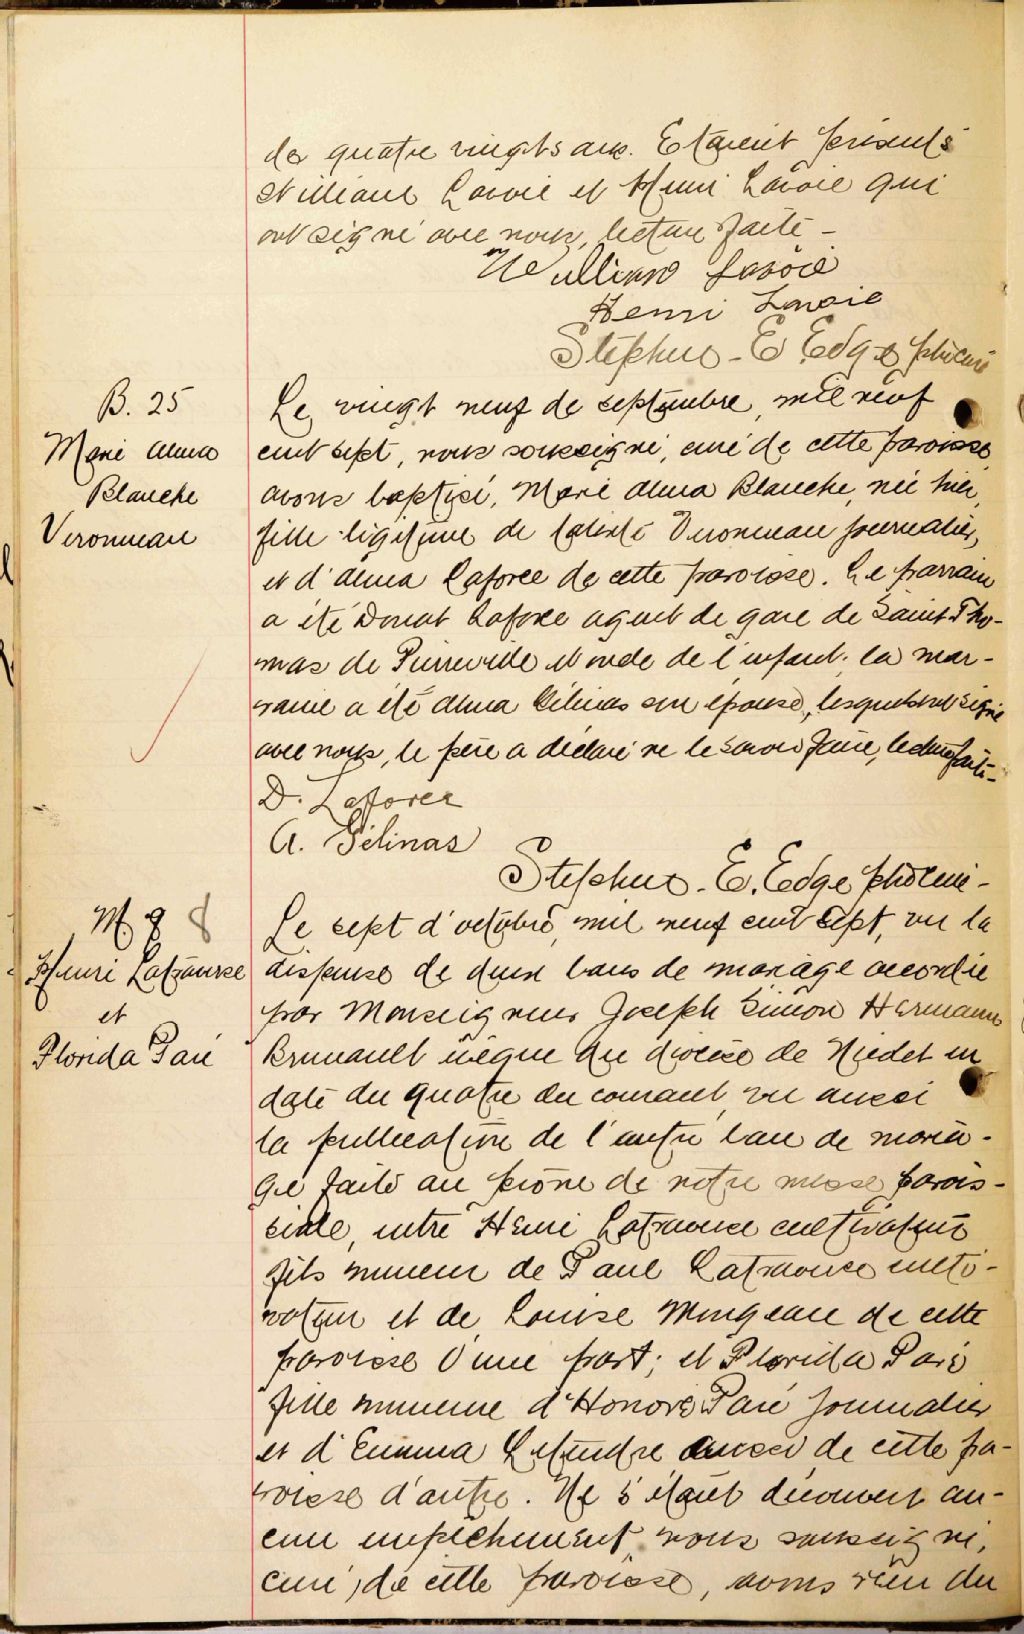 de quatre vingts ans. Etaient présents
William Lavoie et Henri Lavoie qui
ont signé avec nous, lecture faite –
William Lavoie
Henri Lavoie
Stephus - E. Edge ptre curé
B. 25
Marie Alma
Blanche
Veronneau
Le vingt neuf de septembre, mil neuf
cent sept, nous soussigné, curé de cette paroisse,
avons baptisé, Marie Alma Blanche, née hier,
fille légitime de Veronneau journalier,
et d'Alma Laforce de cette paroisse. Le parrain
a été Donat Laforce agent de gare de Saint Tho-
mas de Pierreville et oncle de l'enfant. la mar-
raine a été Alma Gélinas son épouse, lesquels ont signé
avec nous, le père a déclaré ne le savoir faire, lecture faite –
D. Laforce
A. Gélinas
Stephus - E. Edge ptre curé –
M 9 8
Henri Latraverse
et
Florida Paré
Le sept d'octobre, mil neuf cent sept, vu la
dispense de deux bans de mariage accordée
par Monseigneur Joseph Simon Hermann
Brunault évêque du diocèse de Nicolet en
date du quatre du courant, vu aussi
la publication de l'autre ban de maria-
ge faite au prône de notre messe parois-
siale, entre Henri Latraverse cultivateur
fils mineur de Paul Latraverse culti-
vateur et de Louise Mongeau de cette
paroisse d'une part; et Florida Paré
fille mineure d'Honoré Paré journalier
et d'Emma Lefendre aussi de cette pa-
roisse d'autre. Ne s'étant découvert au-
cun empêchement, nous soussigné,
curé, de cette paroisse, avons reçu du